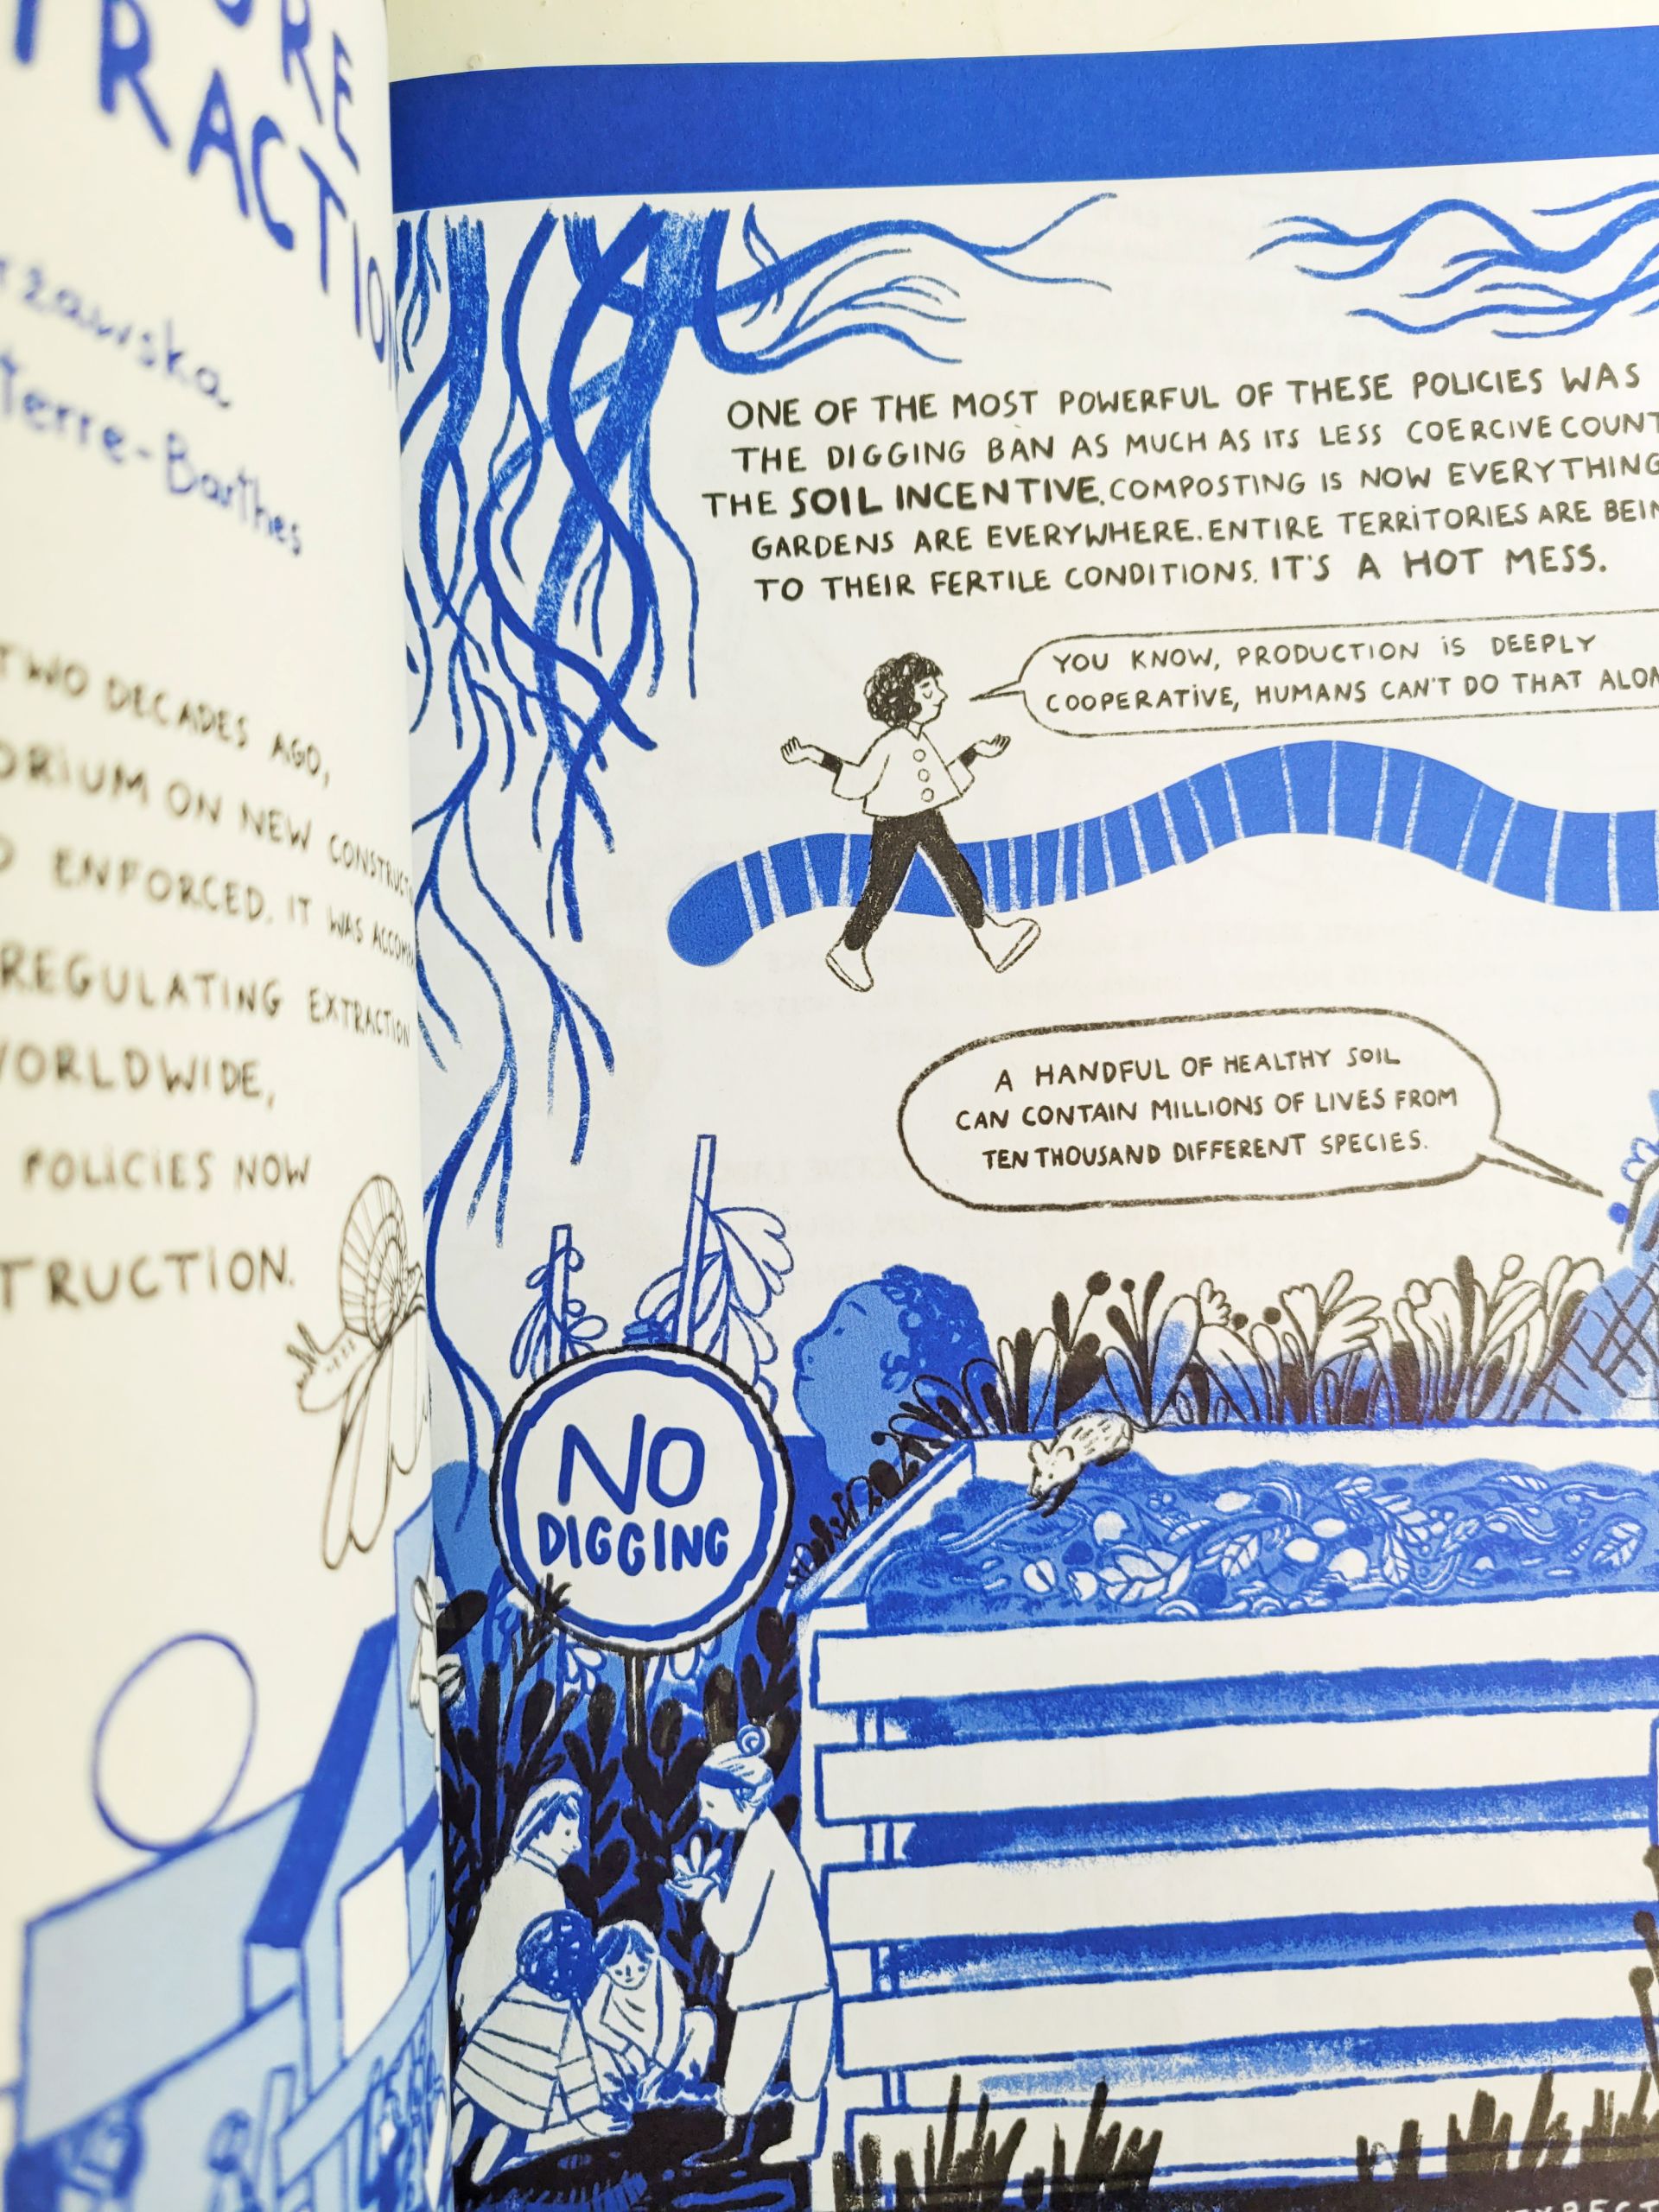 TWO DECADES AGO,
ON NEW
ENFORCED. IT WAS
REGULATING EXTRACTION
WORLDWIDE,
POLICIES NOW
ONE OF THE MOST POWERFUL OF THESE POLICIES WAS
THE DIGGING BAN AS MUCH AS ITS LESS COERCIVE
THE SOIL INCENTIVE. COMPOSTING IS NOW EVERYTHING
GARDENS ARE EVERYWHERE. ENTIRE TERRITORIES ARE
TO THEIR FERTILE CONDITIONS. IT'S A HOT MESS.
YOU KNOW, PRODUCTION IS DEEPLY
COOPERATIVE, HUMANS CAN'T DO THAT
A HANDFUL OF HEALTHY SOIL
CAN CONTAIN MILLIONS OF LIVES FROM
TEN THOUSAND DIFFERENT SPECIES.
NO
DIGGING